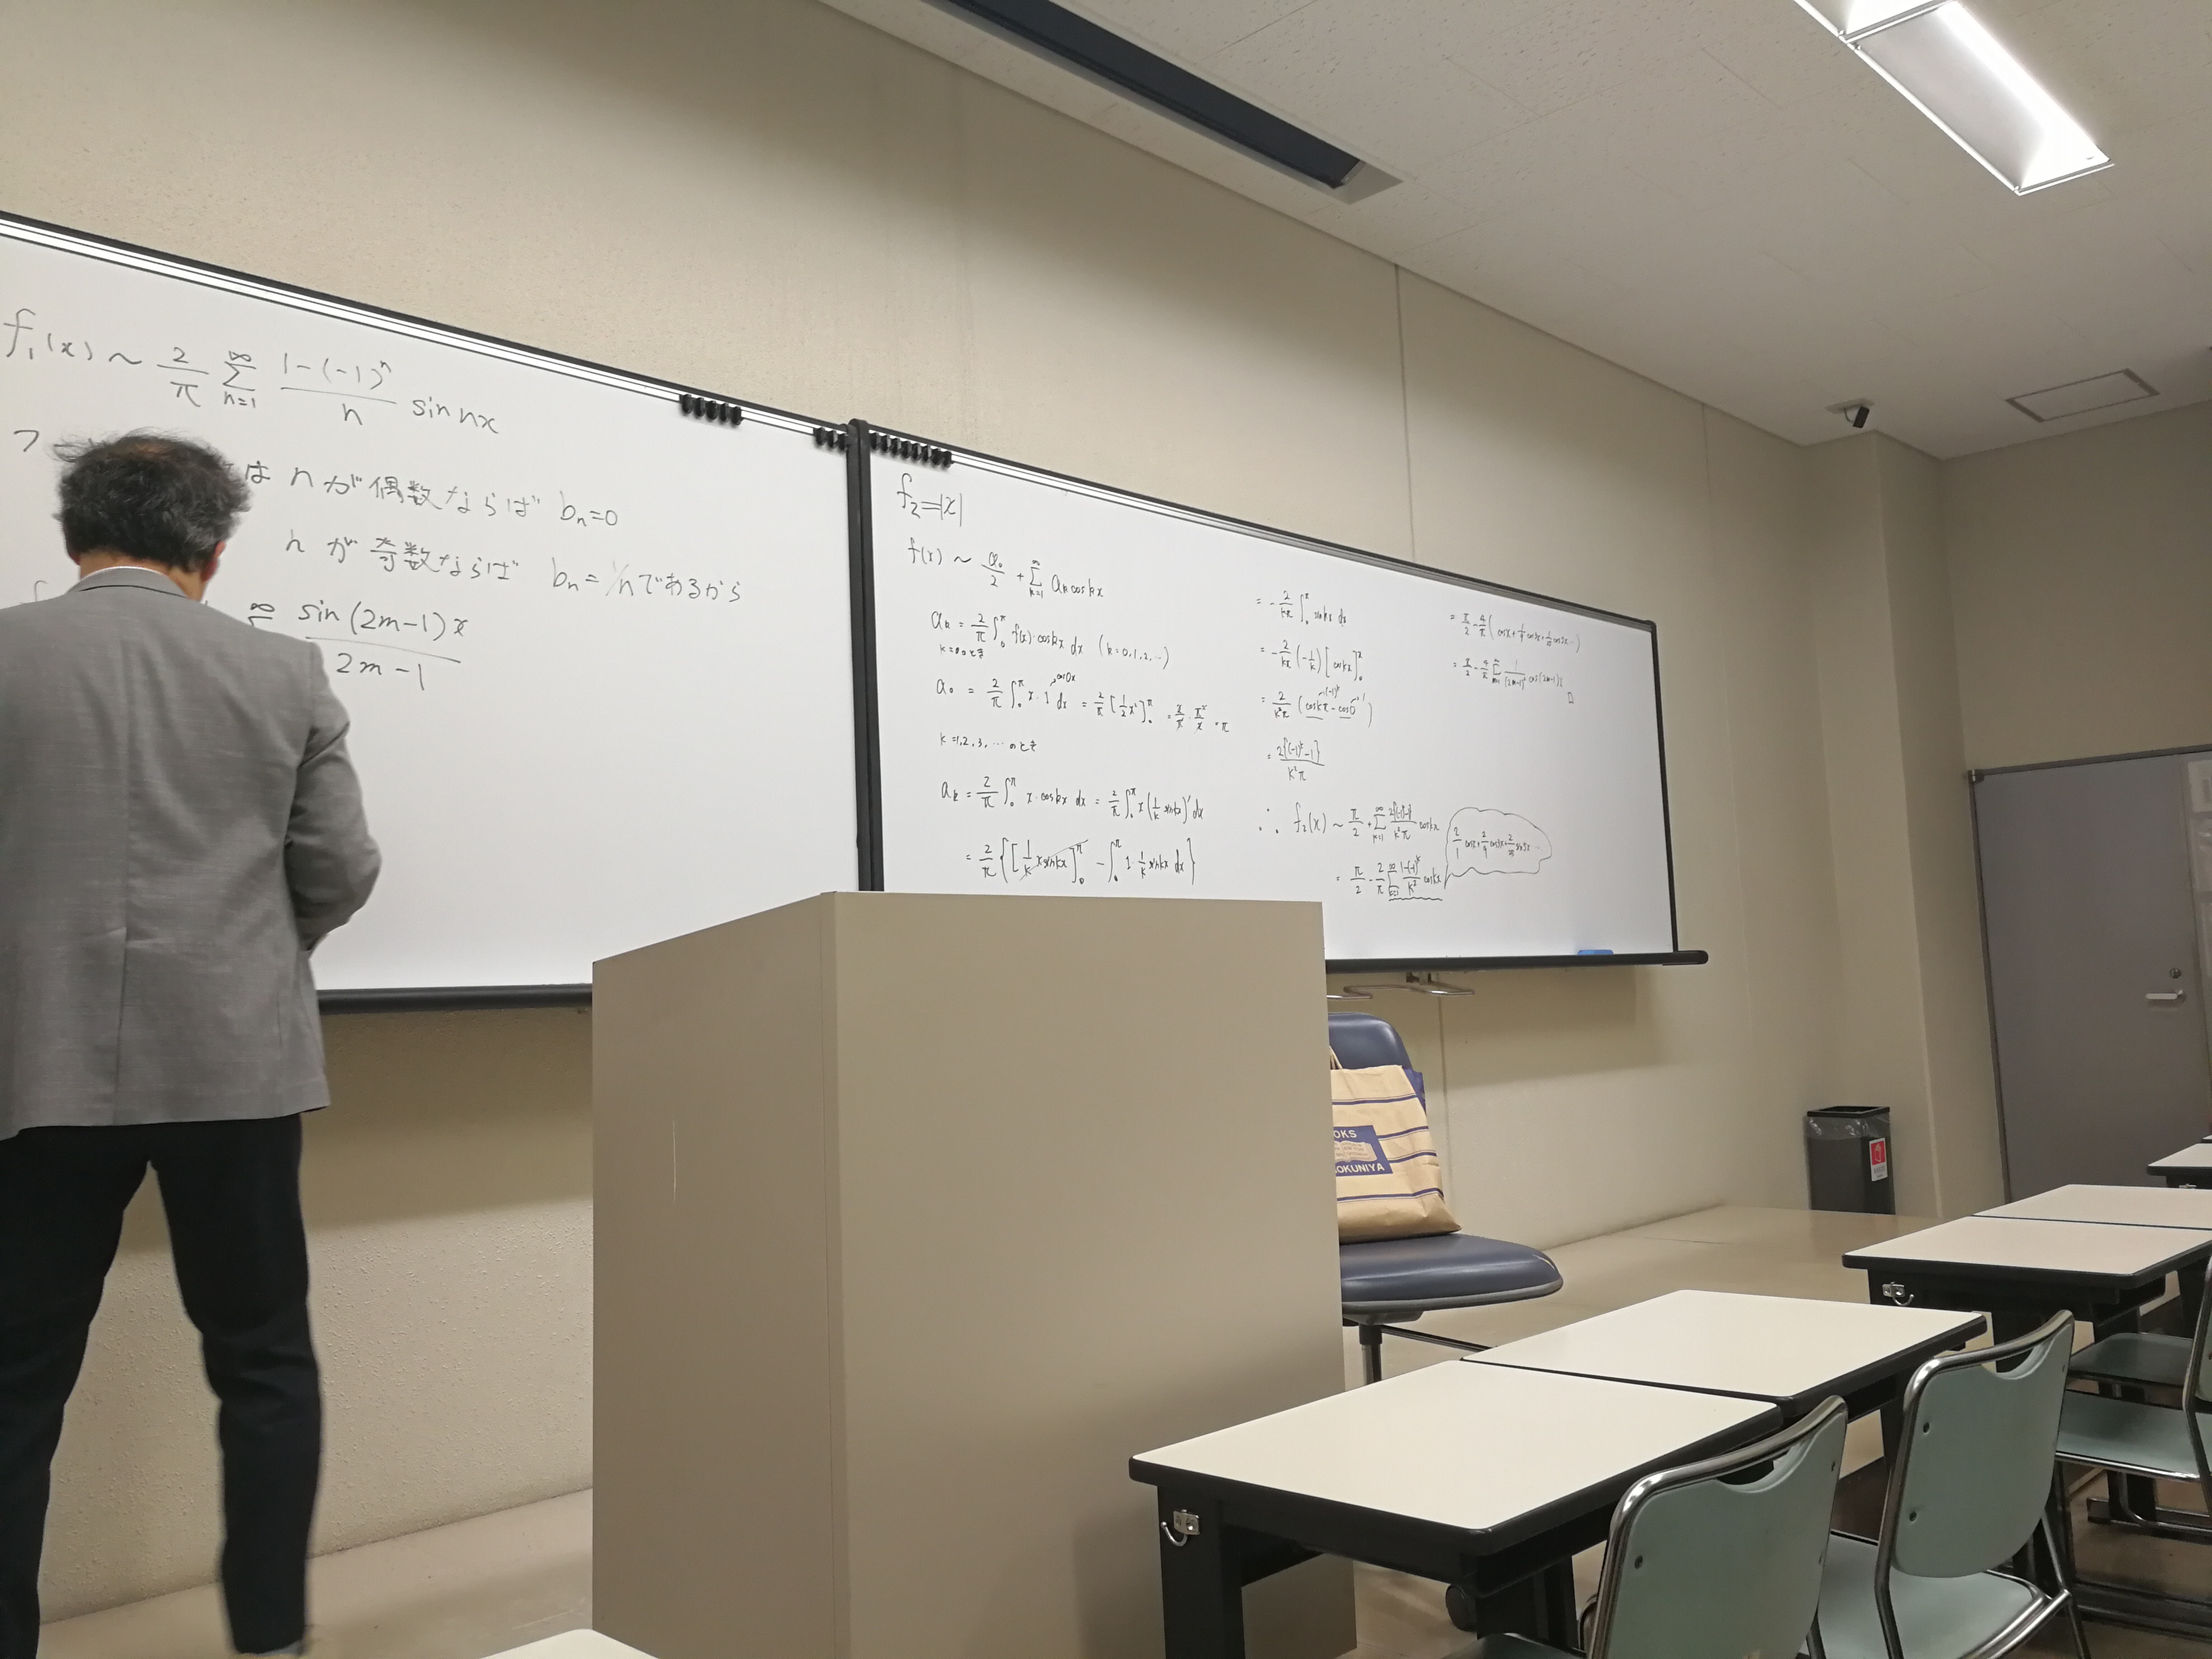 f₁(x) ~ 2/π ∑_{n=1}^{∞} (1-(-1)^n)/n sin nx
フー
は nが偶数ならば bn=0
nが奇数ならば bn=1/nであるから
∞ sin(2m-1)x / 2m-1
f₂=|x|
f(x) ~ a₀/2 + ∑_{k=1}^{∞} ak cos kx
ak = 2/π ∫₀^π f(x)·cos kx dx (k=0,1,2,…)
k=0のとき
a₀ = 2/π ∫₀^π x·1 dx = 2/π [1/2 x²]₀^π = 2/π · π²/2 = π
cos0x
k=1,2,3,…のとき
ak = 2/π ∫₀^π x·cos kx dx = 2/π ∫₀^π x(1/k sin kx)' dx
= 2/π { [1/k x sin kx]₀^π - ∫₀^π 1·1/k sin kx dx }
= -2/kπ ∫₀^π sin kx dx
= -2/kπ (-1/k) [cos kx]₀^π
= 2/k²π (cos kπ - cos 0)
(-1)^k
1
= 2{(-1)^k-1} / k²π
∴ f₂(x) ~ π/2 + ∑_{k=1}^{∞} 2{(-1)^k-1}/k²π cos kx
= π/2 - 2/π ∑_{k=1}^{∞} (1-(-1)^k)/k² cos kx
= π/2 - 4/π (cos x + 1/9 cos 3x + 1/25 cos
= π/2 - 4/π ∑_{m=1}^{∞} 1/(2m-1)² cos(2m-1)x
□
OKS
OKUNIYA